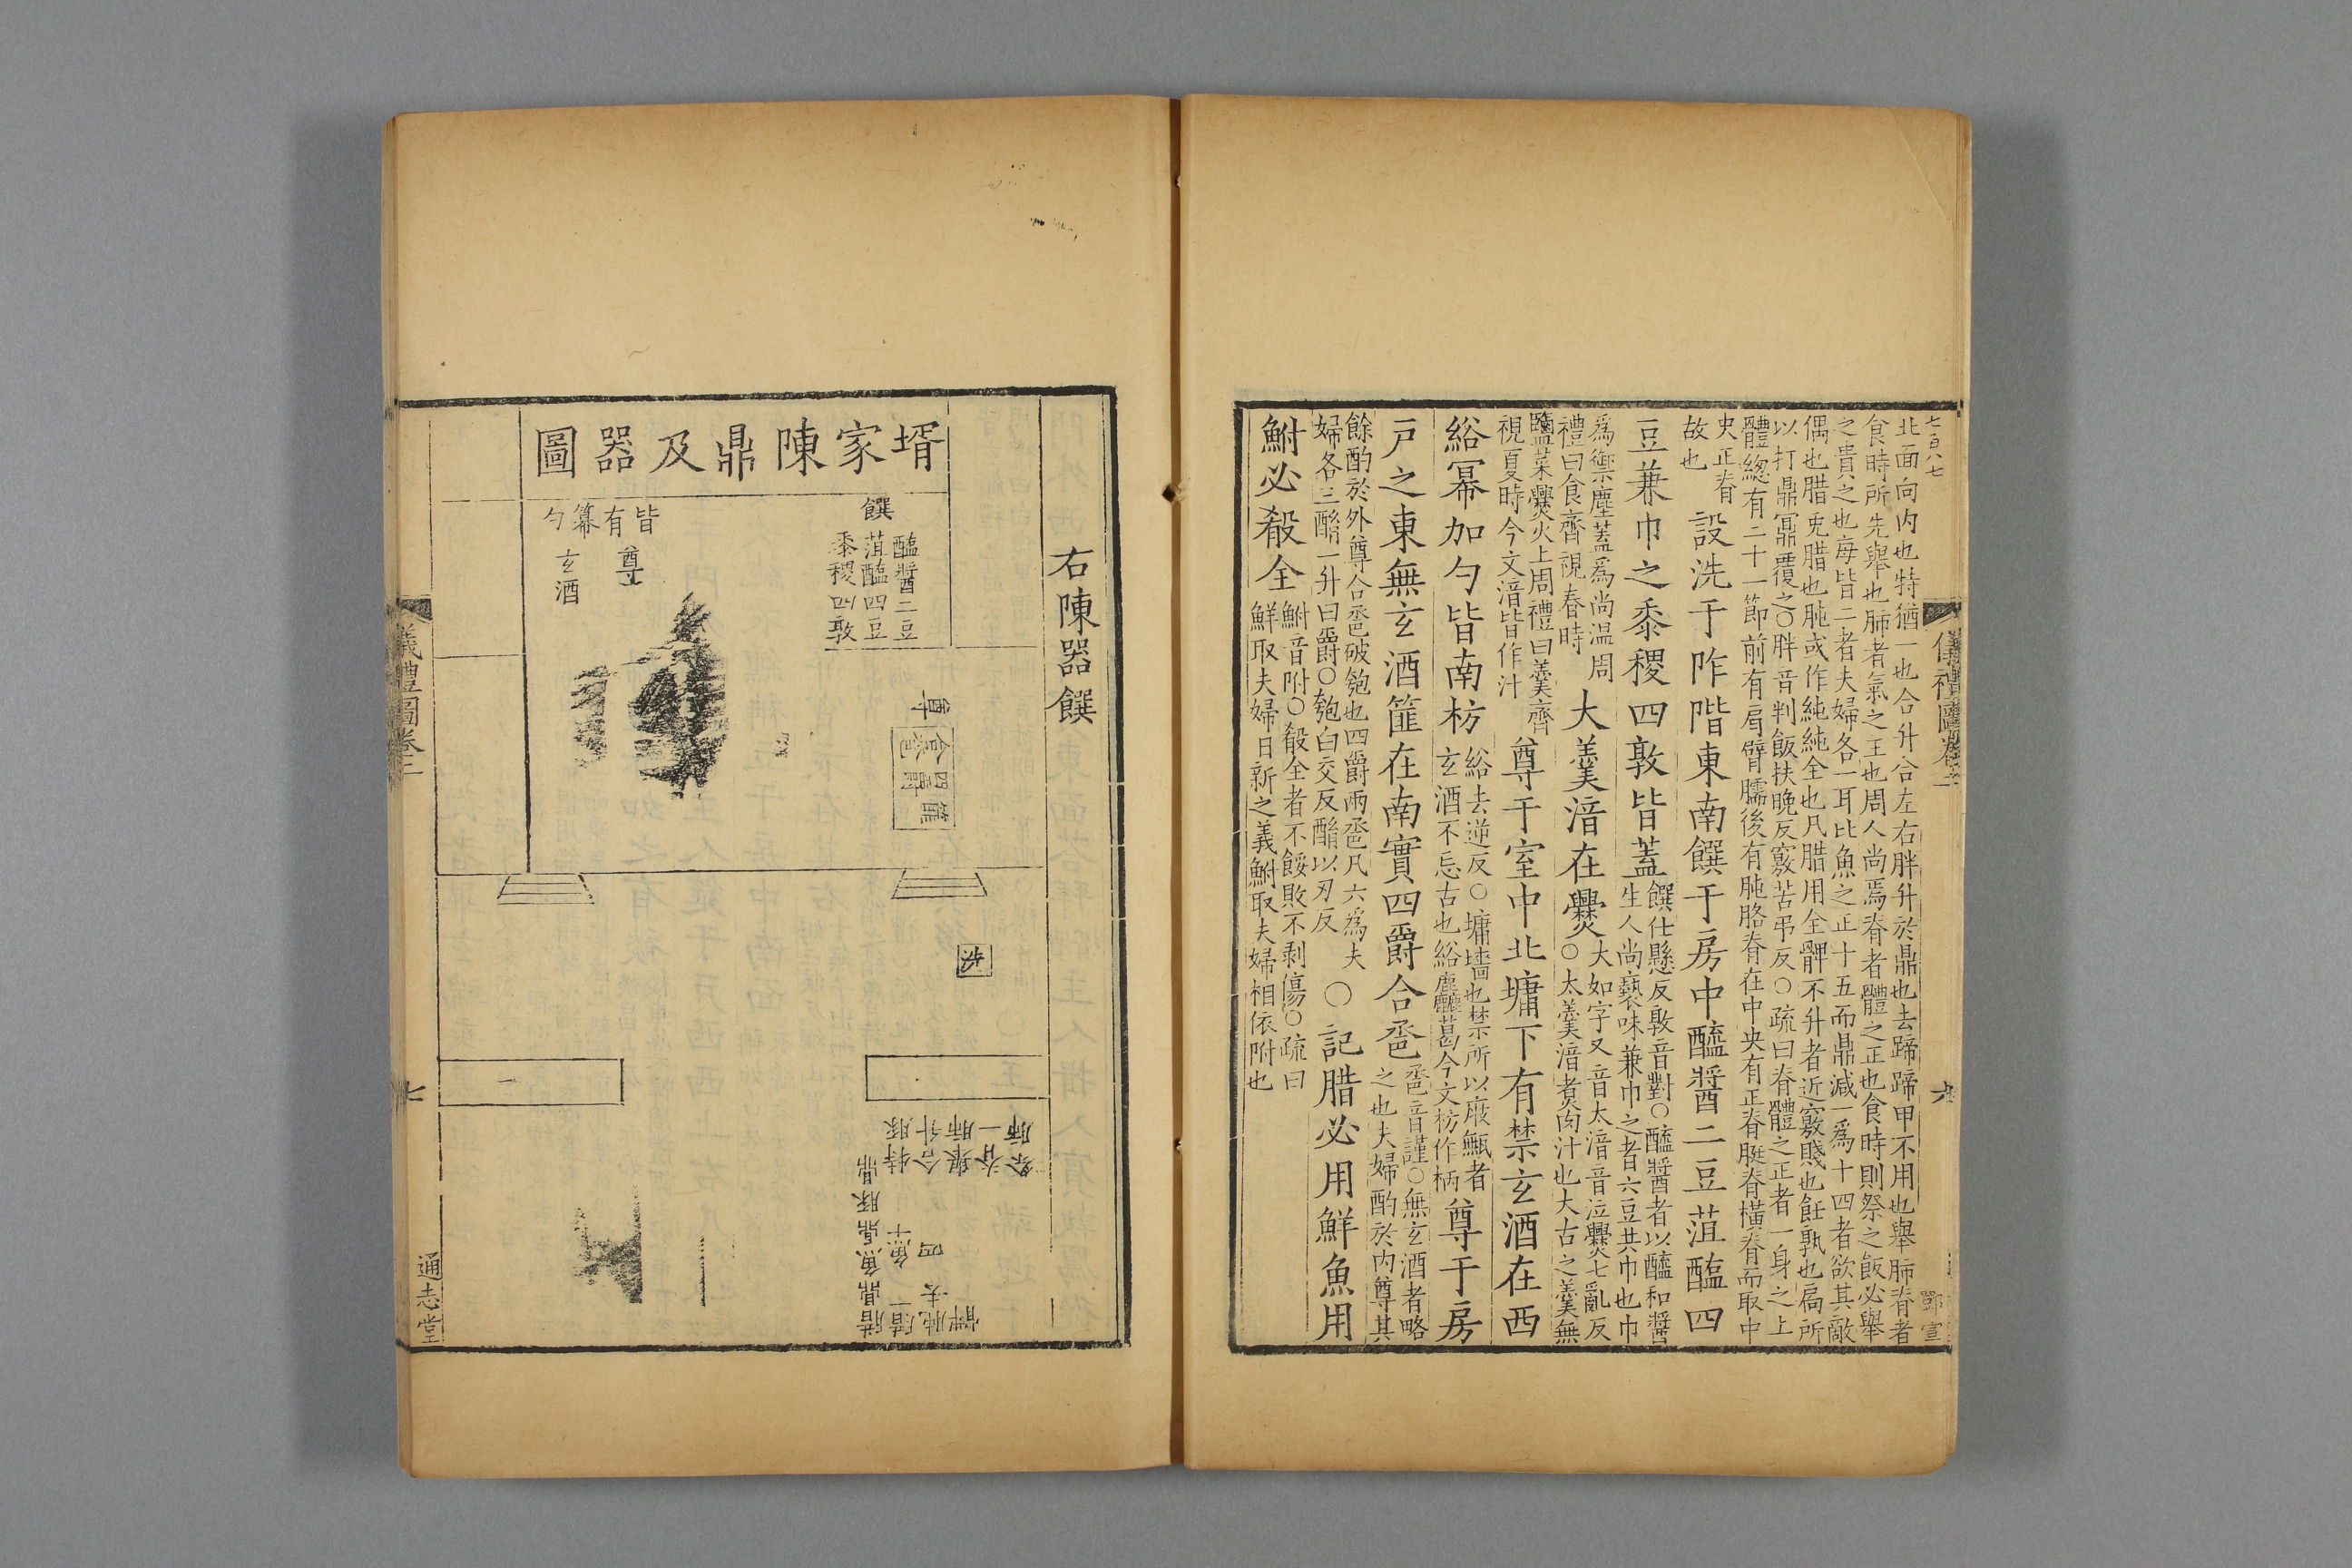 七百八七
北面向内也特猶一也合升合左右胖升於鼎也去蹄蹄甲不用也舉肺脊者
食時所先舉也肺者氣之主也周人尚焉脊者體之正也食時則祭之飯必舉
之貴之也每皆二者夫婦各一耳比魚之正十五而鼎減一為十四者欲其敵
偶也腊兎腊也肫或作純純全也凡腊用全髀不升者近竅賤也飪孰也扃所
以打鼎鼏覆之○胖音判飯扶晚反竅苦弔反○疏曰脊體之正者一身之上
體緫有二十一節前有肩臂臑後有肫胳脊在中央有正脊脡脊橫脊而取中
史正脊
故也
設洗于阼階東南饌于房中醯醬二豆菹醢四
豆兼巾之黍稷四敦皆蓋
饌仕戀反敦音對○醯醬者以醯和醬
生人尚褻味兼巾之者六豆共巾也巾
為禦塵蓋為尚温周
禮曰食齊視春時
大羹湆在爨
大如字又音太湆音泣爨七亂反
○太羹湆者煑肉汁也大古之羹無
鹽菜爨火上周禮曰羹齊
視夏時今文湆皆作汁
尊于室中北墉下有禁玄酒在西
綌冪加勺皆南枋
綌去逆反○墉墻也禁所以庪甒者
玄酒不忘古也綌麤葛今文枋作柄
尊于房
戶之東無玄酒篚在南實四爵合巹
巹音謹○無玄酒者略
之也夫婦酌於内尊其
餘酌於外尊合巹破匏也四爵兩巹凡六為夫
婦各三酳一升曰爵○匏白交反酳以刃反
○記腊必用鮮魚用
鮒必殽全
鮒音附○殽全者不餒敗不剥傷○疏曰
鮮取夫婦日新之義鮒取夫婦相依附也
儀禮圖卷二
六
鄂宣
右陳器饌
壻家陳鼎及器圖
饌
醯醬二豆
菹醢四豆
黍稷四敦
皆有冪勺
尊
玄酒
尊
合巹
四爵
篚
洗
特豚
合升
舉肺
脊一
祭肺
豚鼎
魚鼎
魚十四
腊鼎
腊一
肫去髀
儀禮圖卷二
七
通志堂